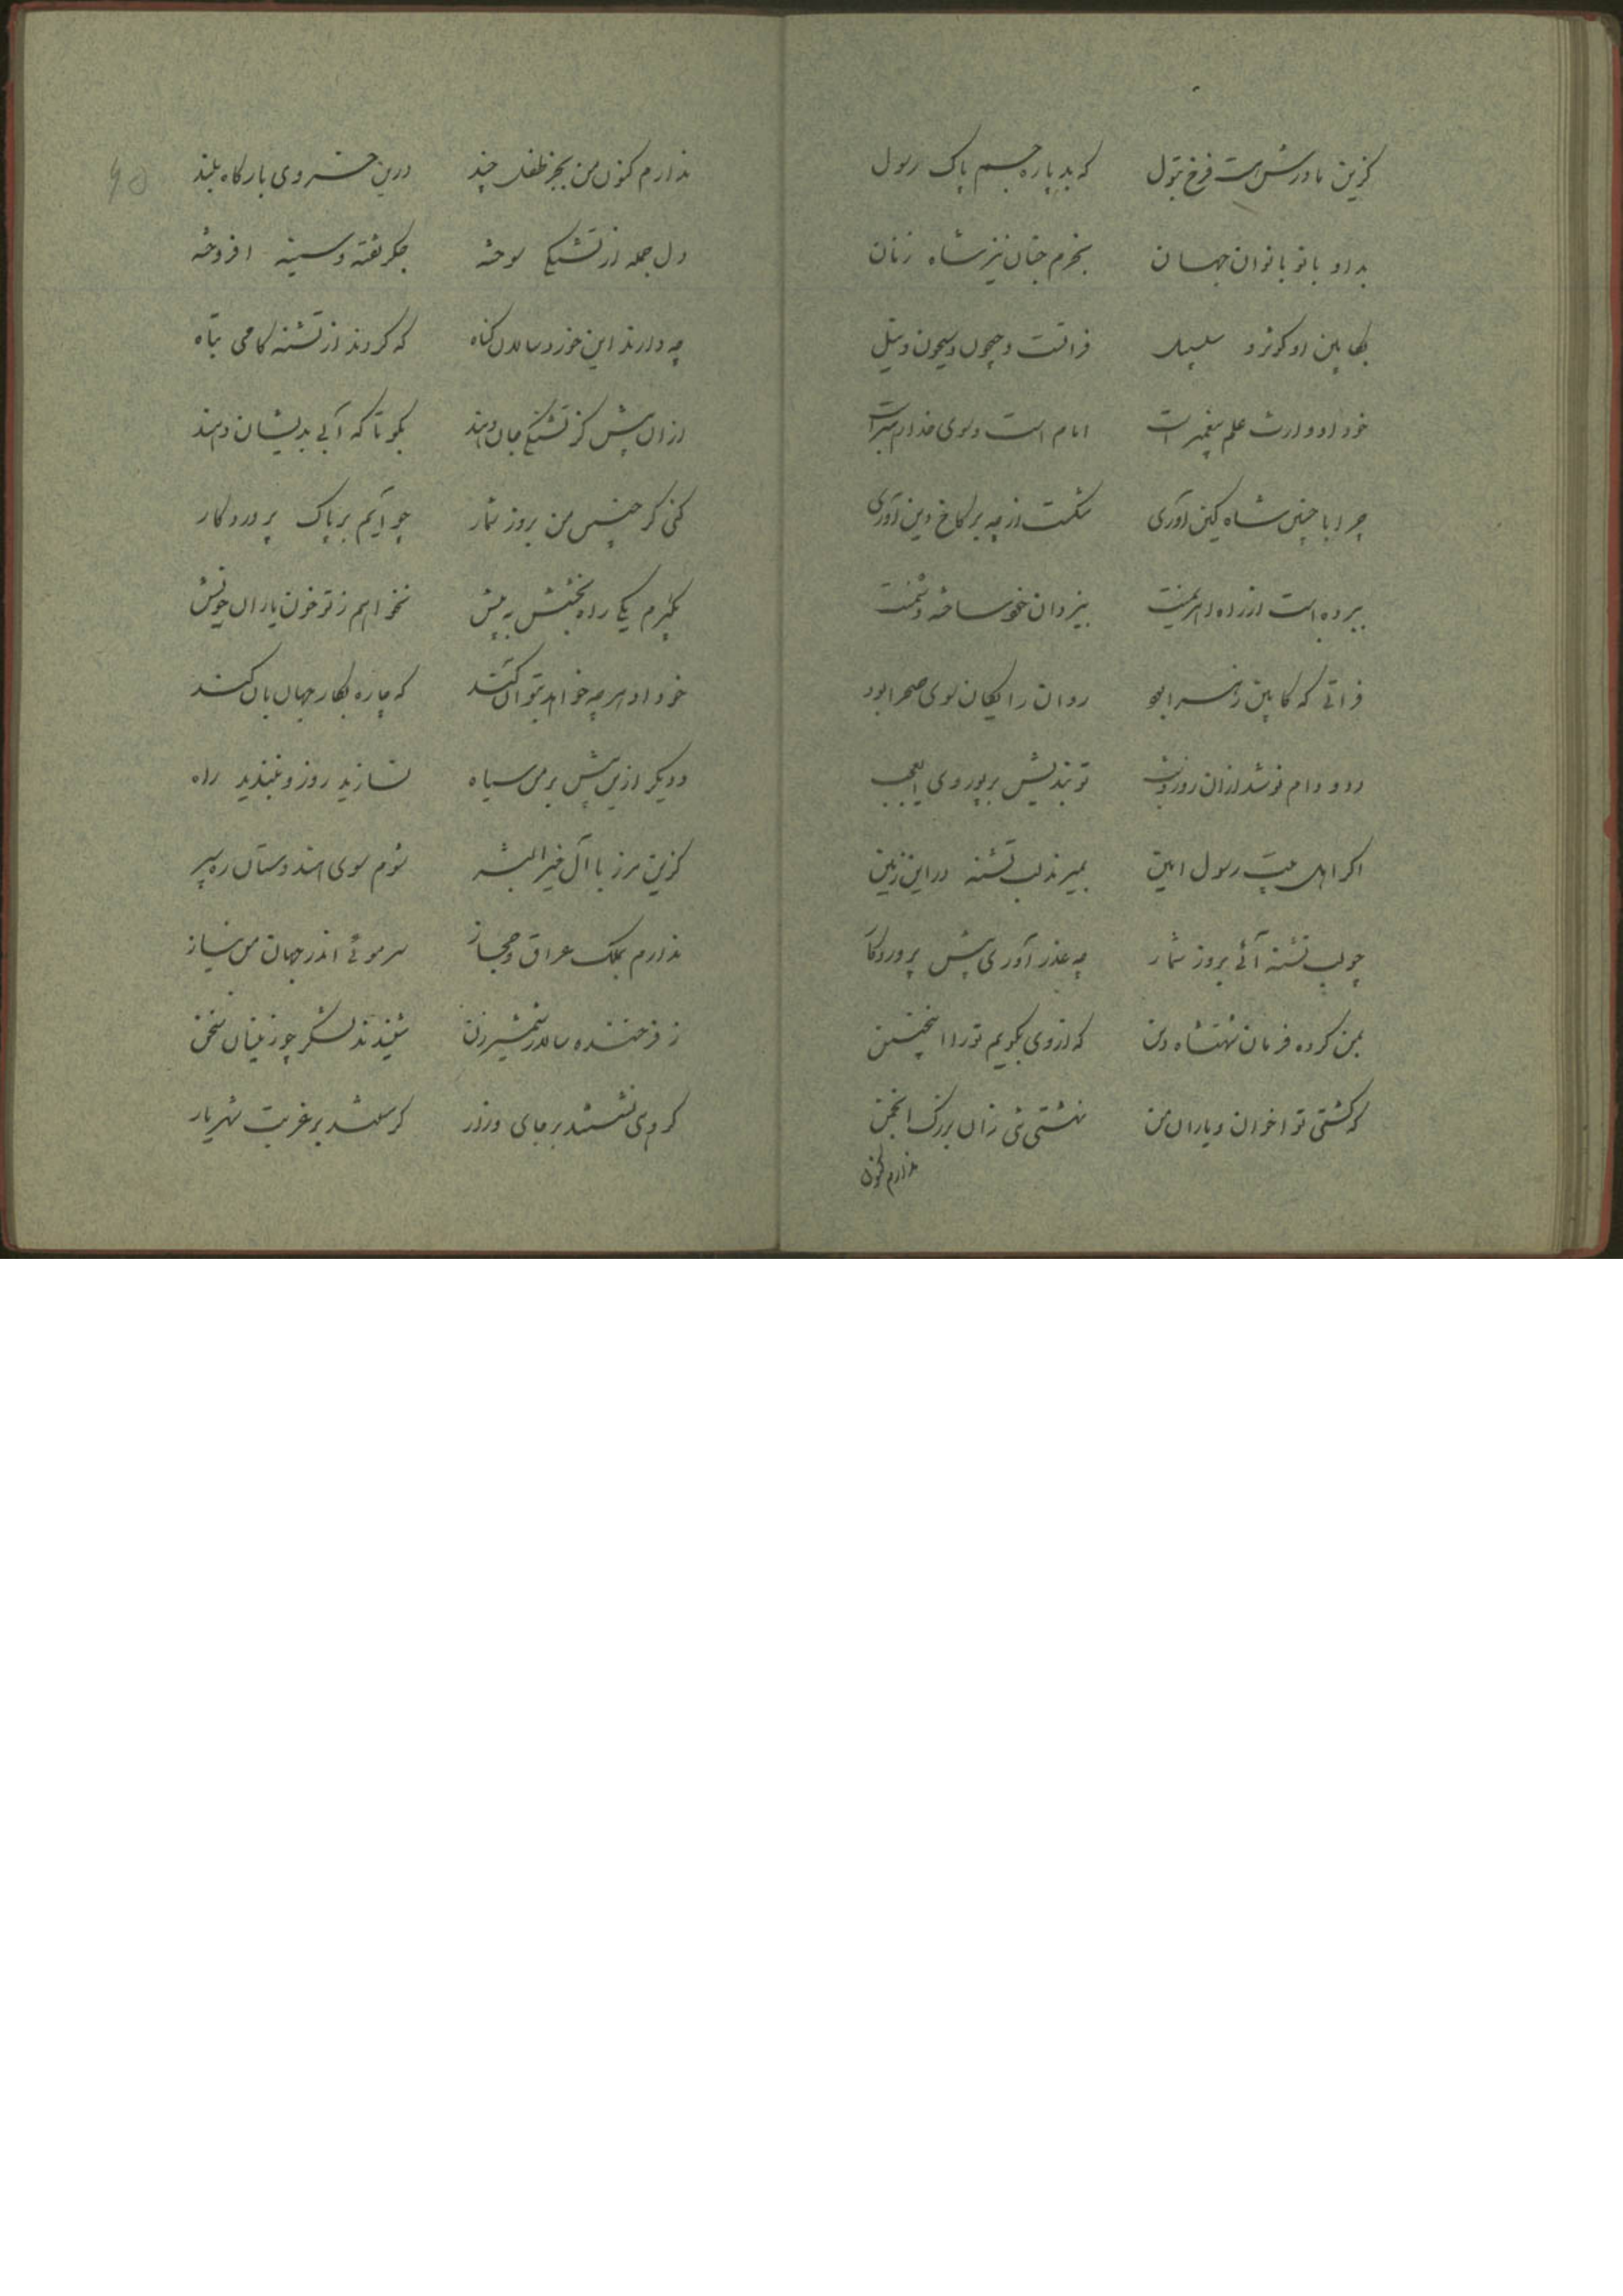 گزین مادرش است فرخ بتول که بد پاره جسم پاک رسول
بد او بانو بانوان جهان بخرم جنان نیز شاه زنان
بکابین او کوثر و سلسبیل فراتست و جیحون و سیحون و نیل
خود او وارث علم پیغمبر است امام است و سوی خدا رهبر است
چرا با چنین شاه کین آوری شکست از چه بر کاخ دین آوری
ببرده است از ره اهریمنت بیزدان خود ساخته دشمنت
فراتی که کابین زهرا بود روان رایگان سوی صحرا بود
دد و دام نوشد ازان روز و شب تو بندیش بر پور وی ای عجب
اگر اهل بیت رسول امین بمیرند لب تشنه در این زمین
چو لب تشنه آئی بروز شمار چه عذر آوری پیش پروردگار
بمن کرده فرمان شهنشاه دین که از وی بگویم تو را اینچنین
که کشتی تو اخوان و یاران من نهشتی تنی زان بزرگ انجمن
ندارم کنون
ندارم کنون من بجز طفل چند درین خسروی بارگاه بلند
دل جمله از تشنگی سوخته جگر تفته و سینه افروخته
چه دارند این خورد سالان گناه که گردند از تشنه کامی تباه
ازان پیش کز تشنگی جان دهند بگو تا که آبی بدیشان دهند
کنی گر چنین من بروز شمار چو آیم بر پاک پروردگار
بگیرم یکی راه بخشش به پیش نخواهم ز تو خون یاران خویش
خود او هر چه خواهد بتو آن کند که چاره بکار جهانبان کند
و دیگر ازین پیش بر من سیاه نسازید روز و نبندید راه
کزین مرز با آل خیر البشر شوم سوی هندوستان ره سپر
ندارم بملک عراق و حجاز سر موئی اندر جهان من نیاز
ز فرخنده سالار شمشیرزن شنیدند لشکر چو زینسان سخن
گروهی نشستند بر جای وزار گرستند بر غربت شهریار